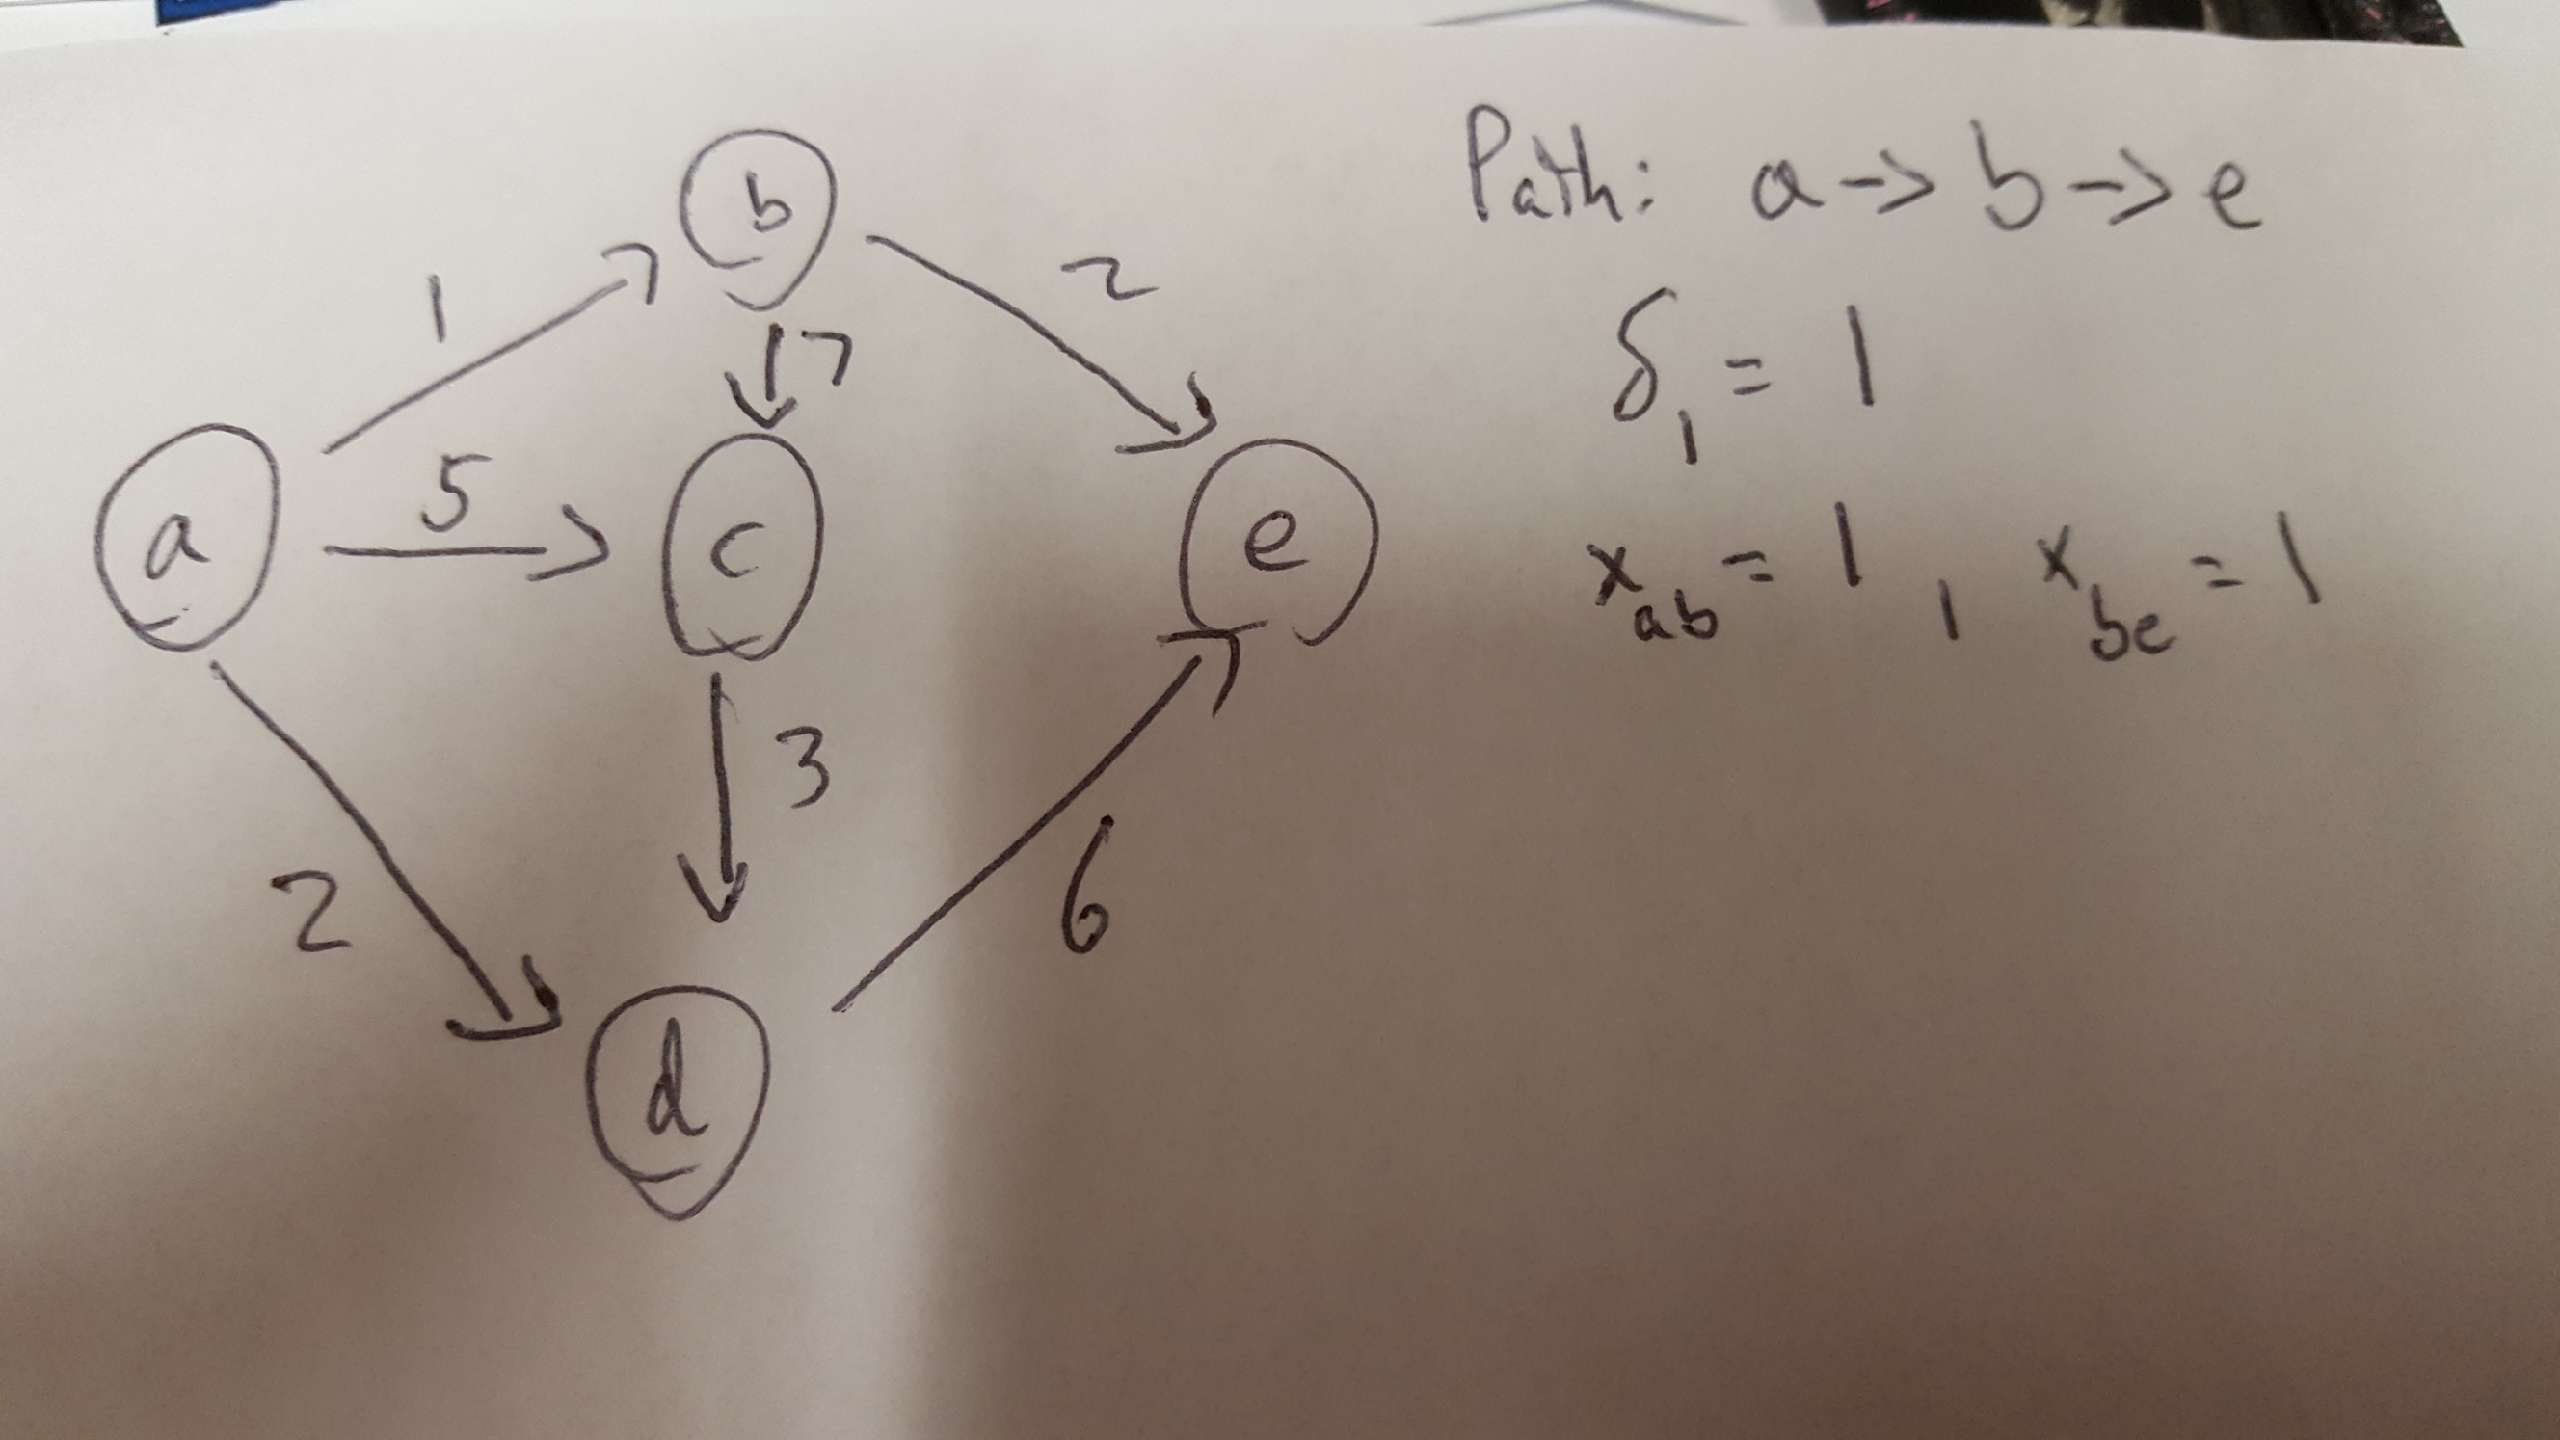 b
1
2
7
a
5
c
e
3
2
6
d
Path: a -> b -> e
δ₁ = 1
x_ab = 1, x_be = 1